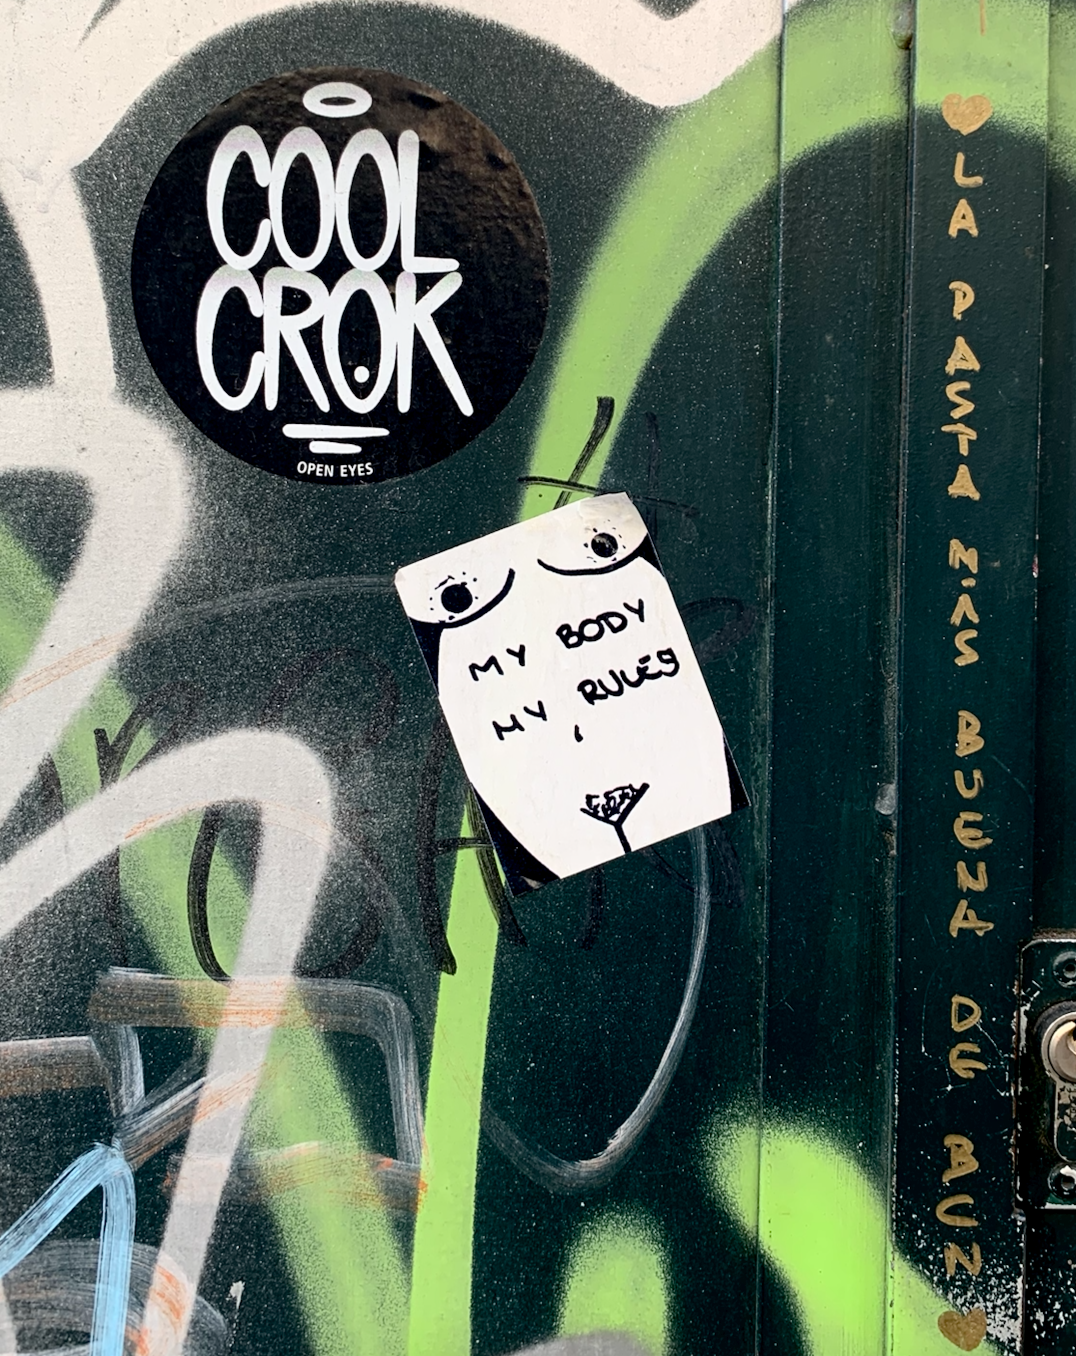 COOL
CROK
OPEN EYES
MY BODY
MY RULES
LA PASTA MÁS BUENA DE BCN